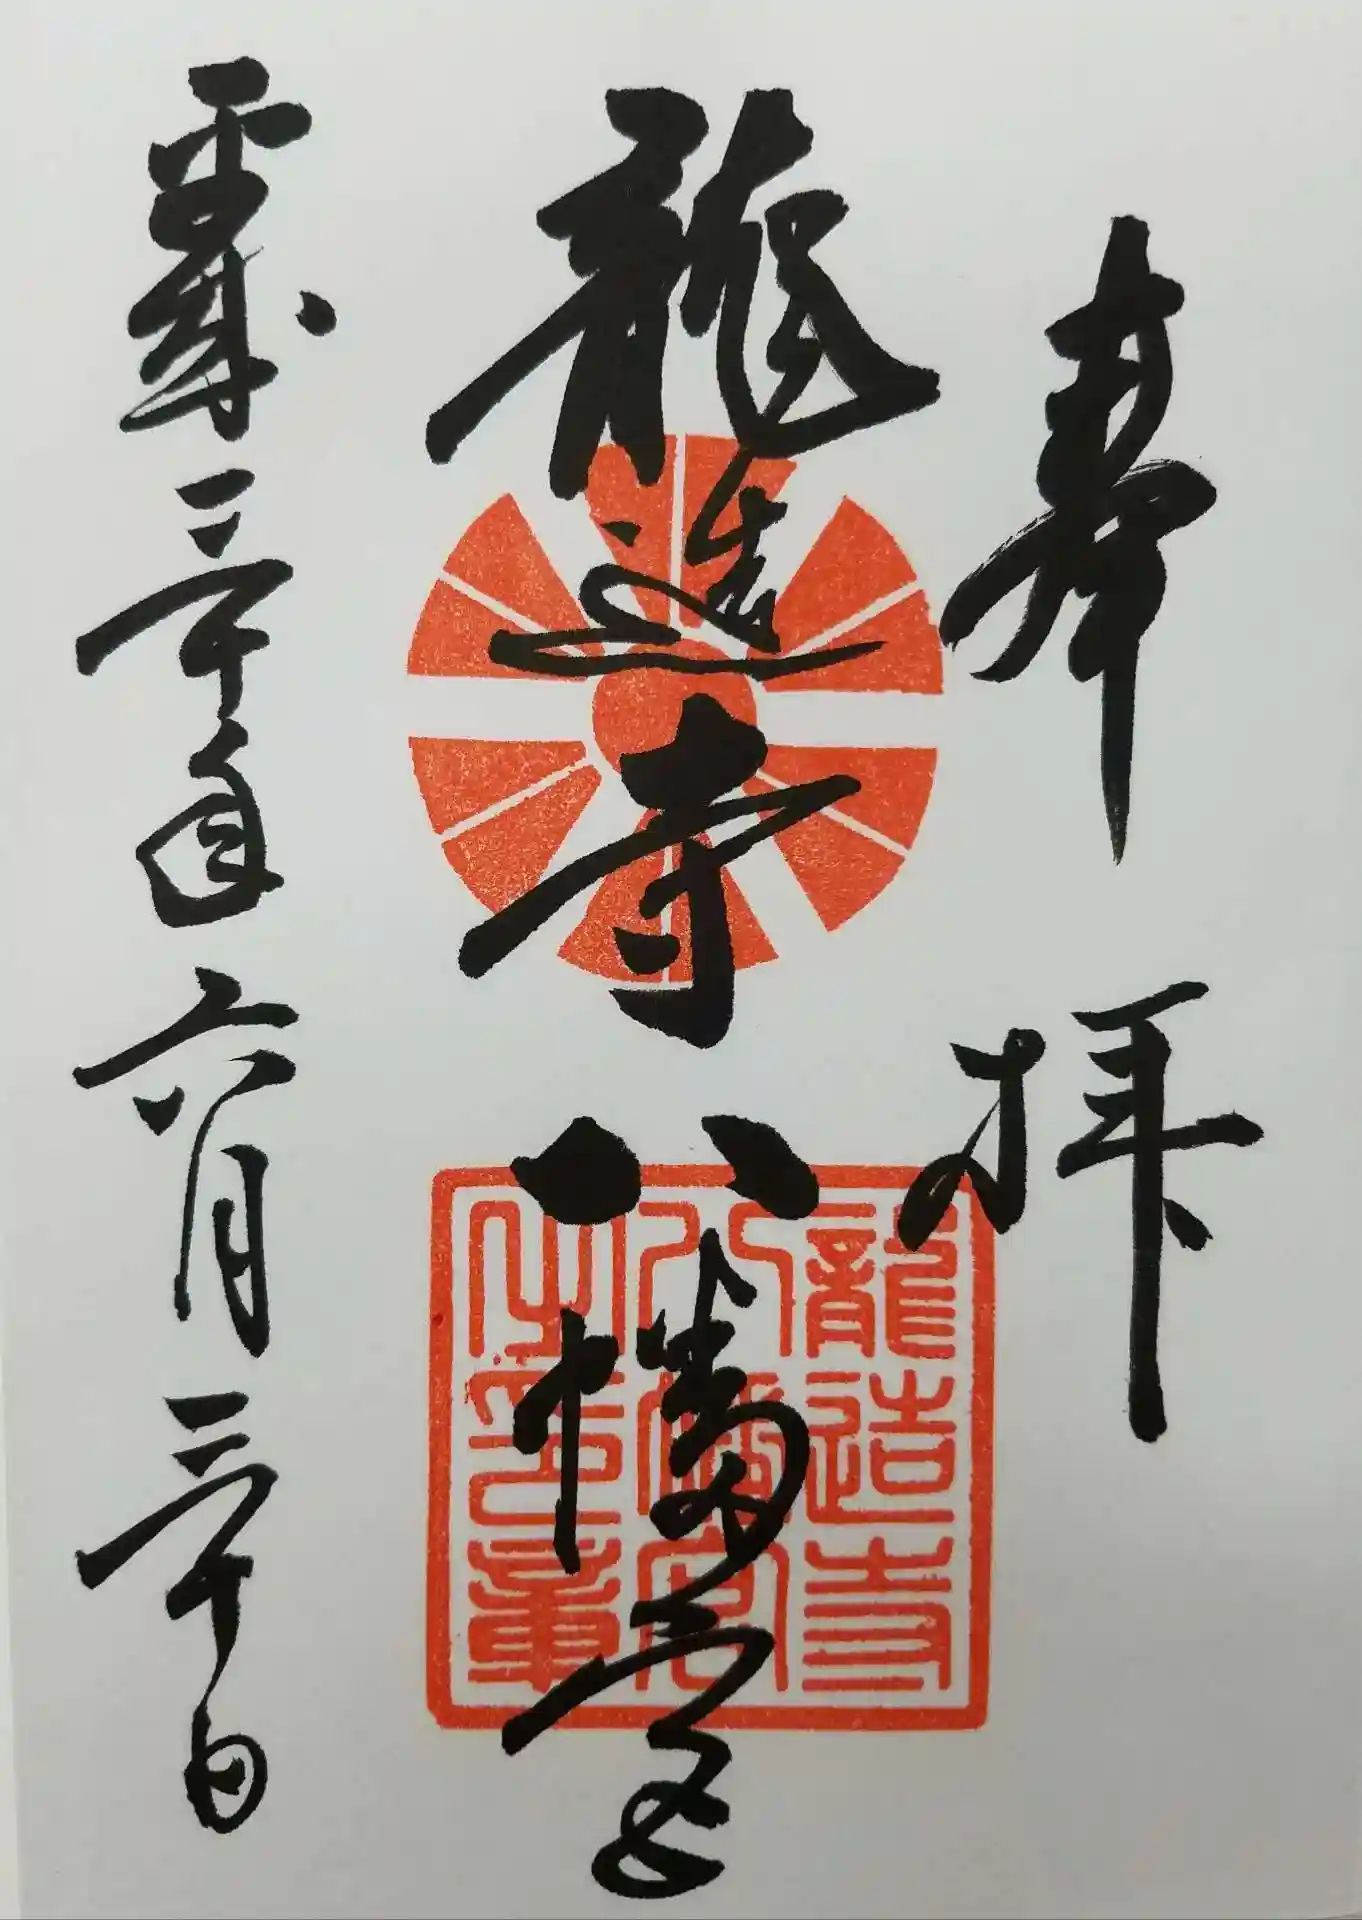 奉拝
龍造寺八幡宮
平成三十年六月三十日
龍造寺
八幡宮
之印章